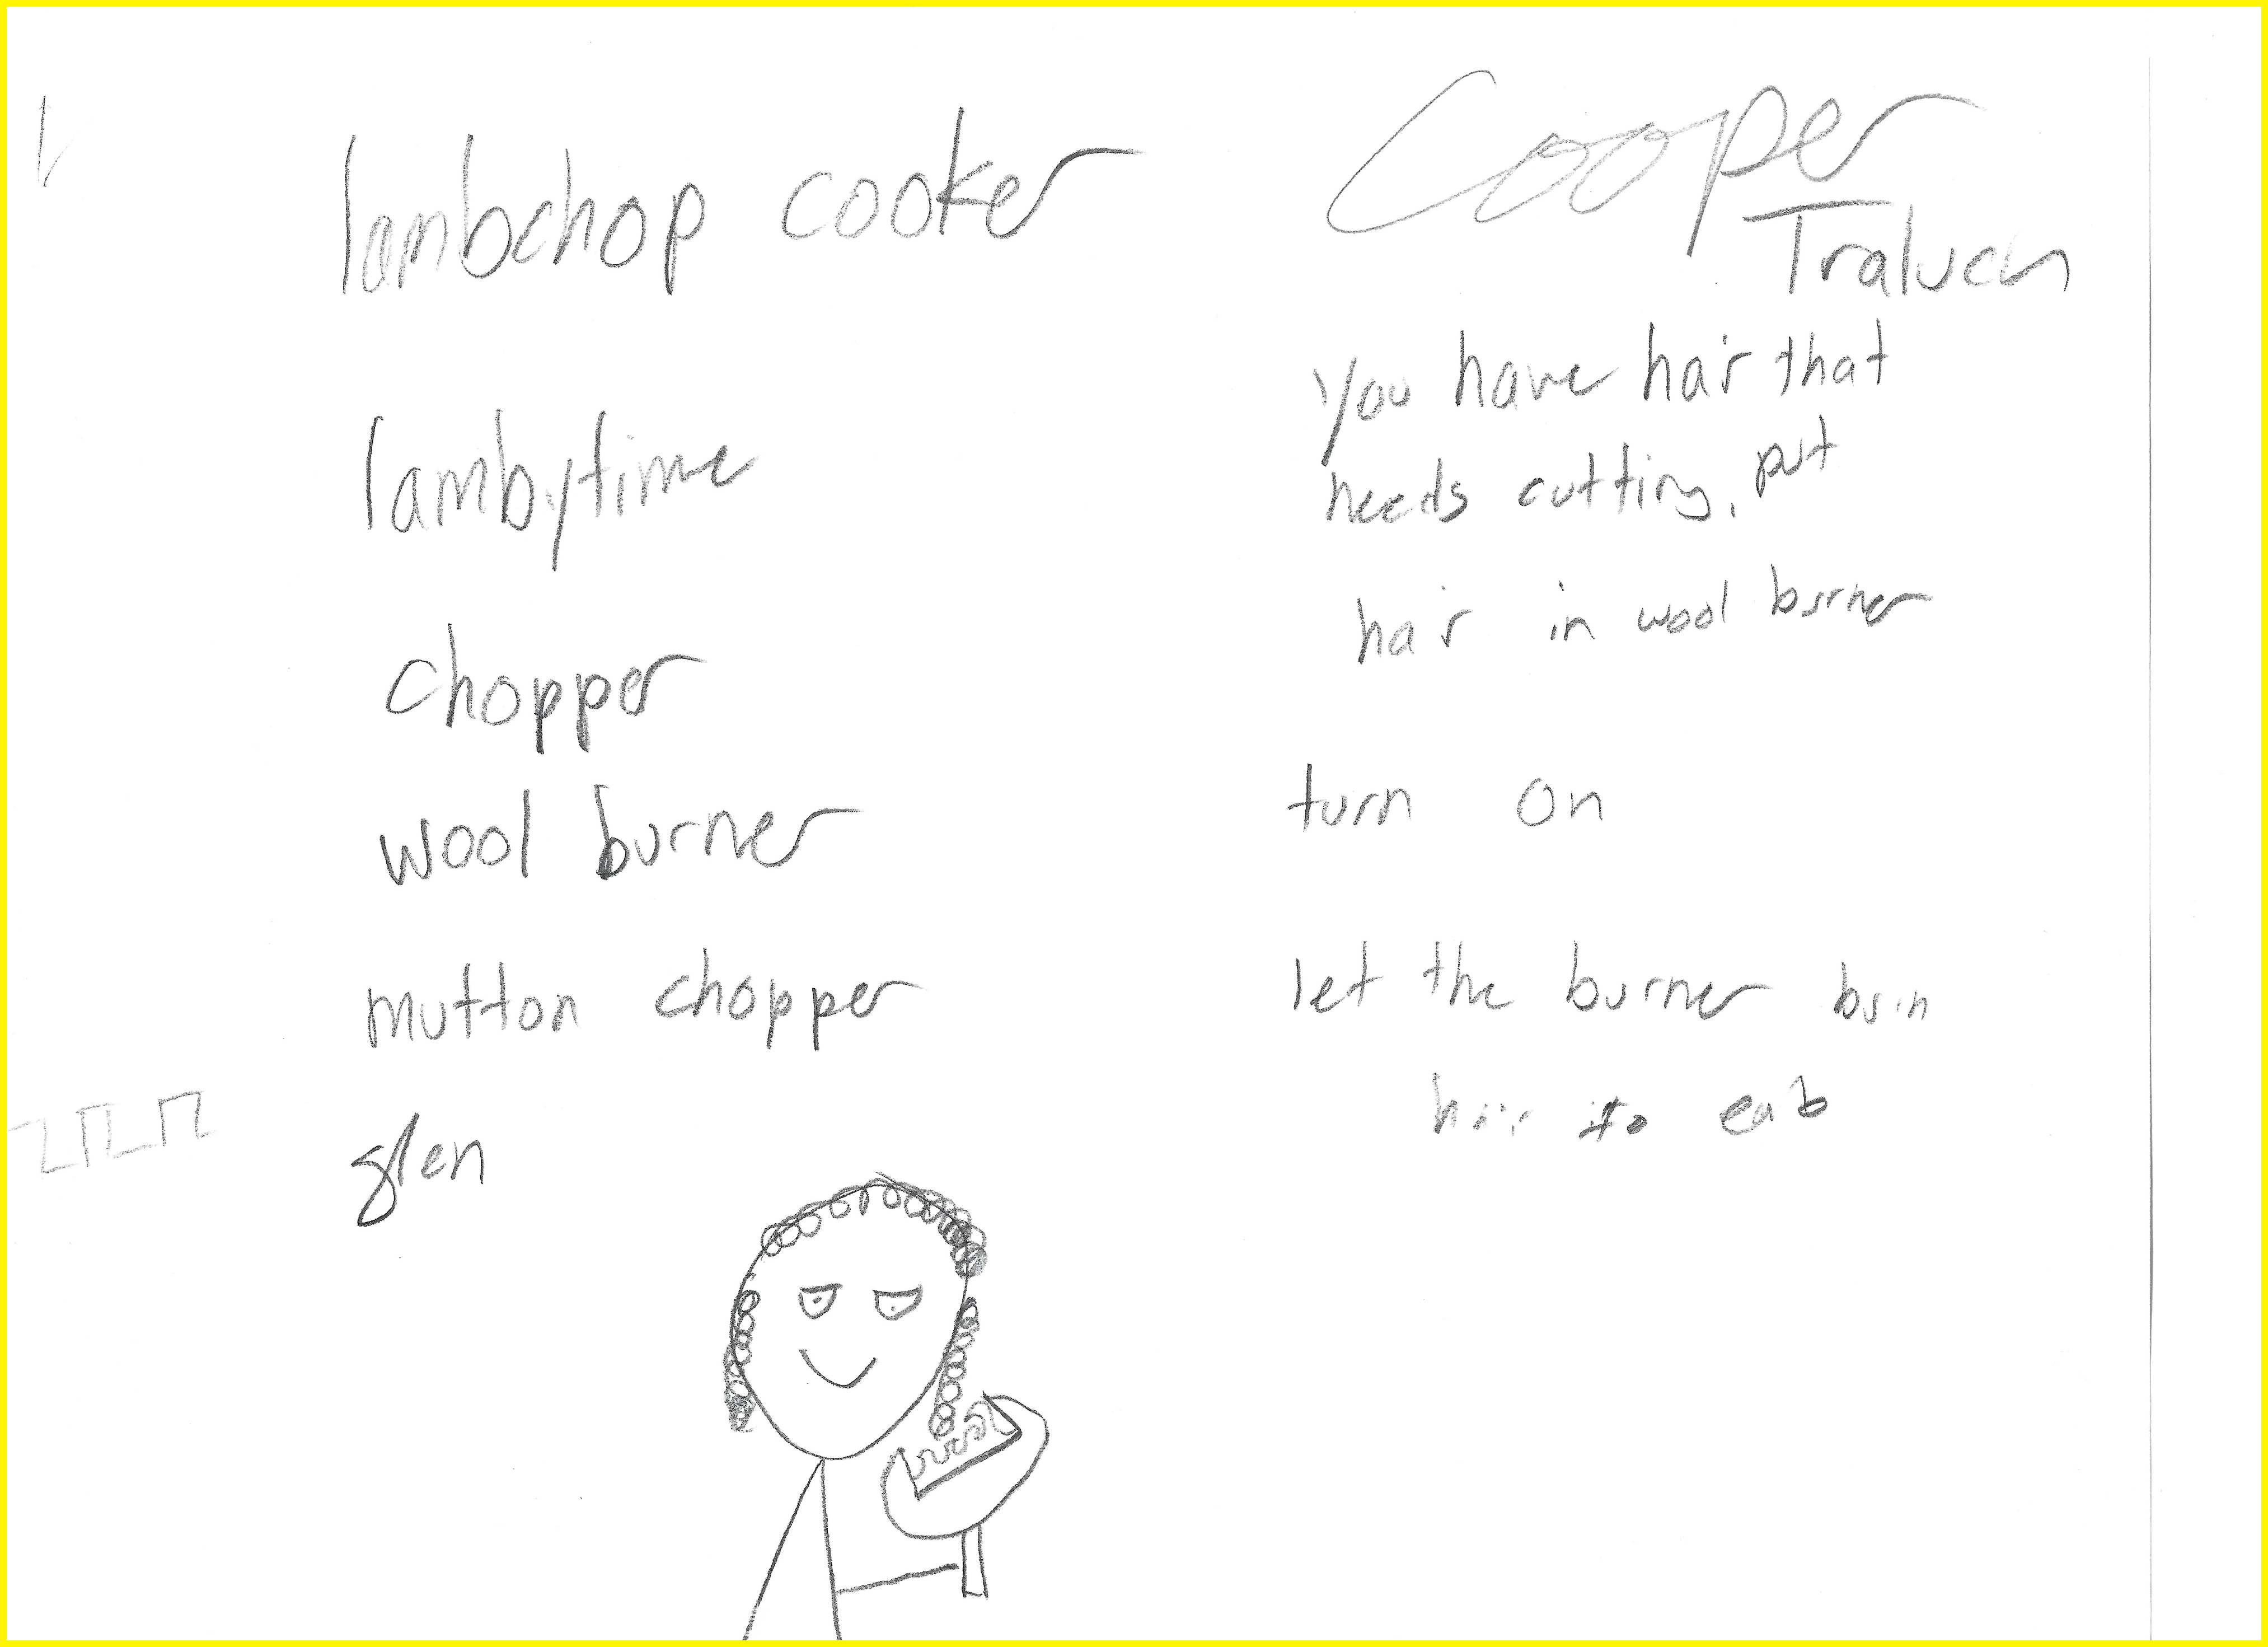 lambchop cooker
lambytime
chopper
wool burner
mutton chopper
glen
Cooper
you have hair that
needs cutting, put
hair in wool burner
turn on
let the burner burn
hair to